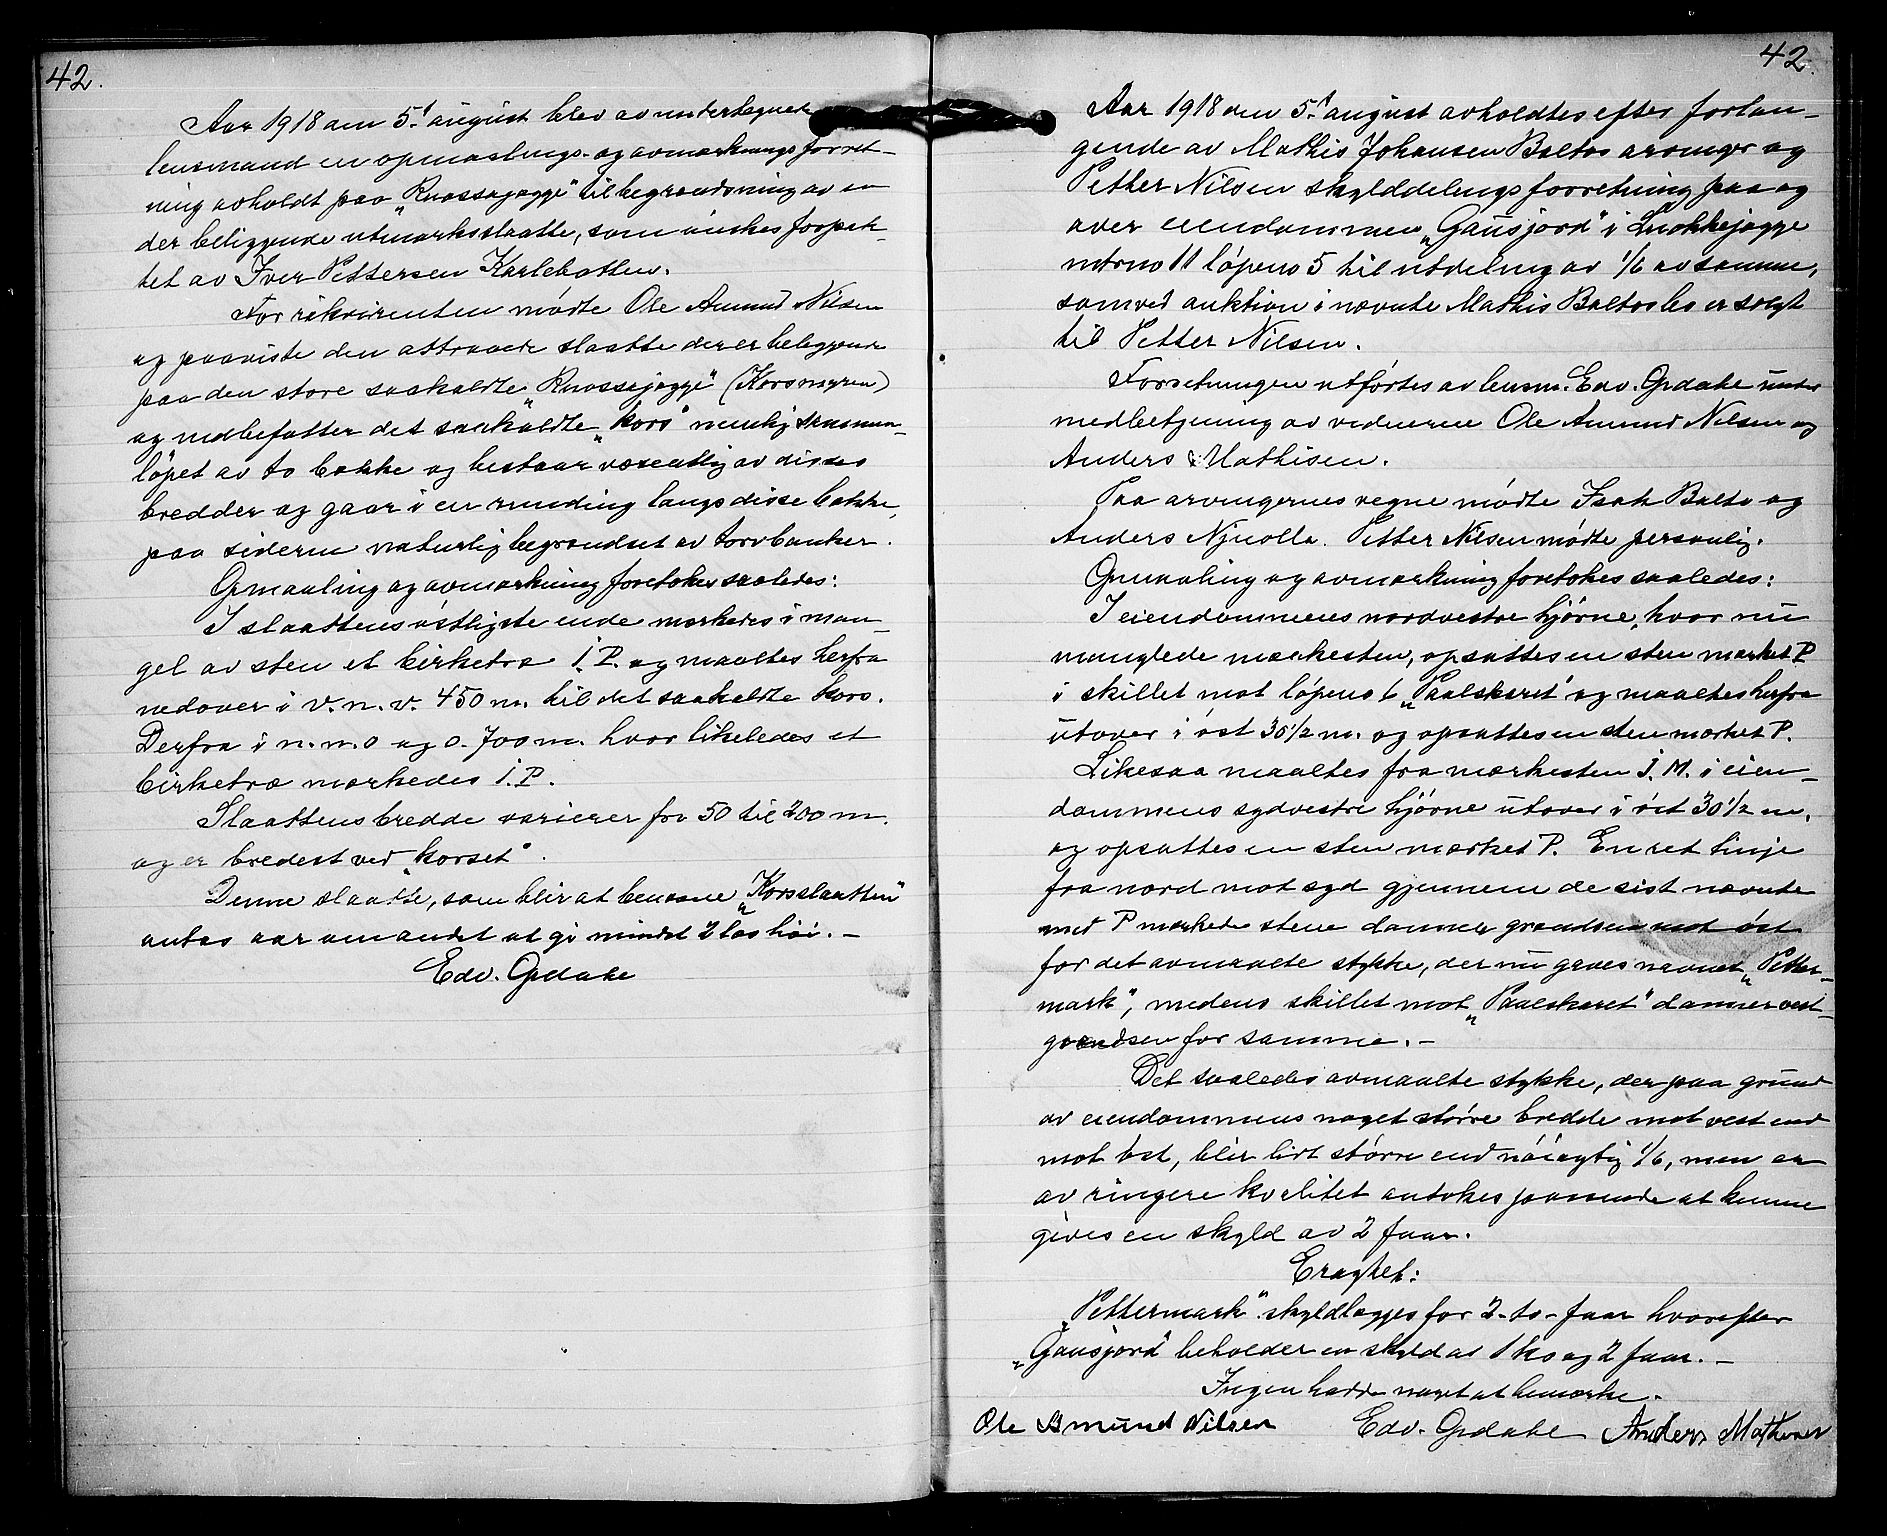 42.
Aar 1918 den 5. august blev av undertegnede
lensmand en opmaalings- og avmerkningsforret-
ning avholdt paa „Ruossajægge" til begrændsning av en
der beliggende utmarksslaatte, som ønskes forpak-
tet av Iver Pettersen Karlebotten.
For rekvirenten mødte Ole Amund Nilsen
og paaviste den attraaede slaatte der er beliggende
paa den store saakaldte „Ruossajægge" (Korsmyren)
og indbefatter det saakaldte „kors" nemlig sammen-
løpet av to bække og bestaar væsentlig av disses
bredder og gaar i en runding langs disse bække,
paa siderne naturlig begrændset av torvbanker.
Opmaaling og avmerkning foretokes saaledes:
I slaattens østligste ende merkedes i man-
gel av sten et birketræ I. P. og maaltes herfra
nedover i v. n. v. 450 m. til det saakaldte kors.
Derfra i n. n. o og o. 700 m. hvor likeledes et
birketræ merkedes I. P.
Slaattens bredde varierer fra 50 til 200 m.
og er bredest ved „korset".
Denne slaatte, som blir at benævne „Korsslaatten"
antas aar om andet at gi mindst 2 las høi. -
Edv. Opdahl
42.
Aar 1918 den 5. august avholdtes efter forlan-
gende av Mathis Johansen Baltos arvinger og
Petter Nilsen skylddelingsforretning paa og
over eiendommen „Gausjord" i Luokkejægge
mtrno 11 løpeno 5 til utdeling av 1/6 av samme,
som ved auktion i nævnte Mathis Baltos bo er solgt
til Petter Nilsen.
Forretningen utførtes av lensm. Edv. Opdahl under
medbetjening av vidnerne Ole Amund Nilsen og
Anders Mathisen.
Paa arvingernes vegne mødte Isak Balto og
Anders Njuolla. Petter Nilsen mødte personlig.
Opmaaling og avmerkning foretokes saaledes:
I eiendommens nordvestre hjørne, hvor nu
manglede merkesten, opsattes en sten merket P
i skillet mot løpeno 6 „Paalskaret" og maaltes herfra
utover i øst 30 1/2 m. og opsattes en sten merket P.
Likesaa maaltes fra merkesten J. M. i eien-
dommens sydvestre hjørne utover i øst 30 1/2 m.
og opsattes en sten merket P. En ret linje
fra nord mot syd gjennem de sist nævnte
med P merkede stene danner grændsen mot øst
for det avmaalte stykke, der nu gaves navnet „Petter-
mark", medens skillet mot „Paalskaret" danner vest-
grændsen for samme. -
Det saaledes avmaalte stykke, der paa grund
av eiendommens noget større bredde mot vest end
mot øst, blir lidt større end nøiagtig 1/6, men er
av ringere kvalitet antokes passende at kunne
gives en skyld av 2 faar.
Eragtet:
„Pettermark" skyldlægges for 2 - to - faar hvorefter
„Gausjord" beholder en skyld av 1 ko og 2 faar. -
Ingen hadde noget at bemerke.
Ole Amund Nilsen Edv. Opdahl Anders Mathisen